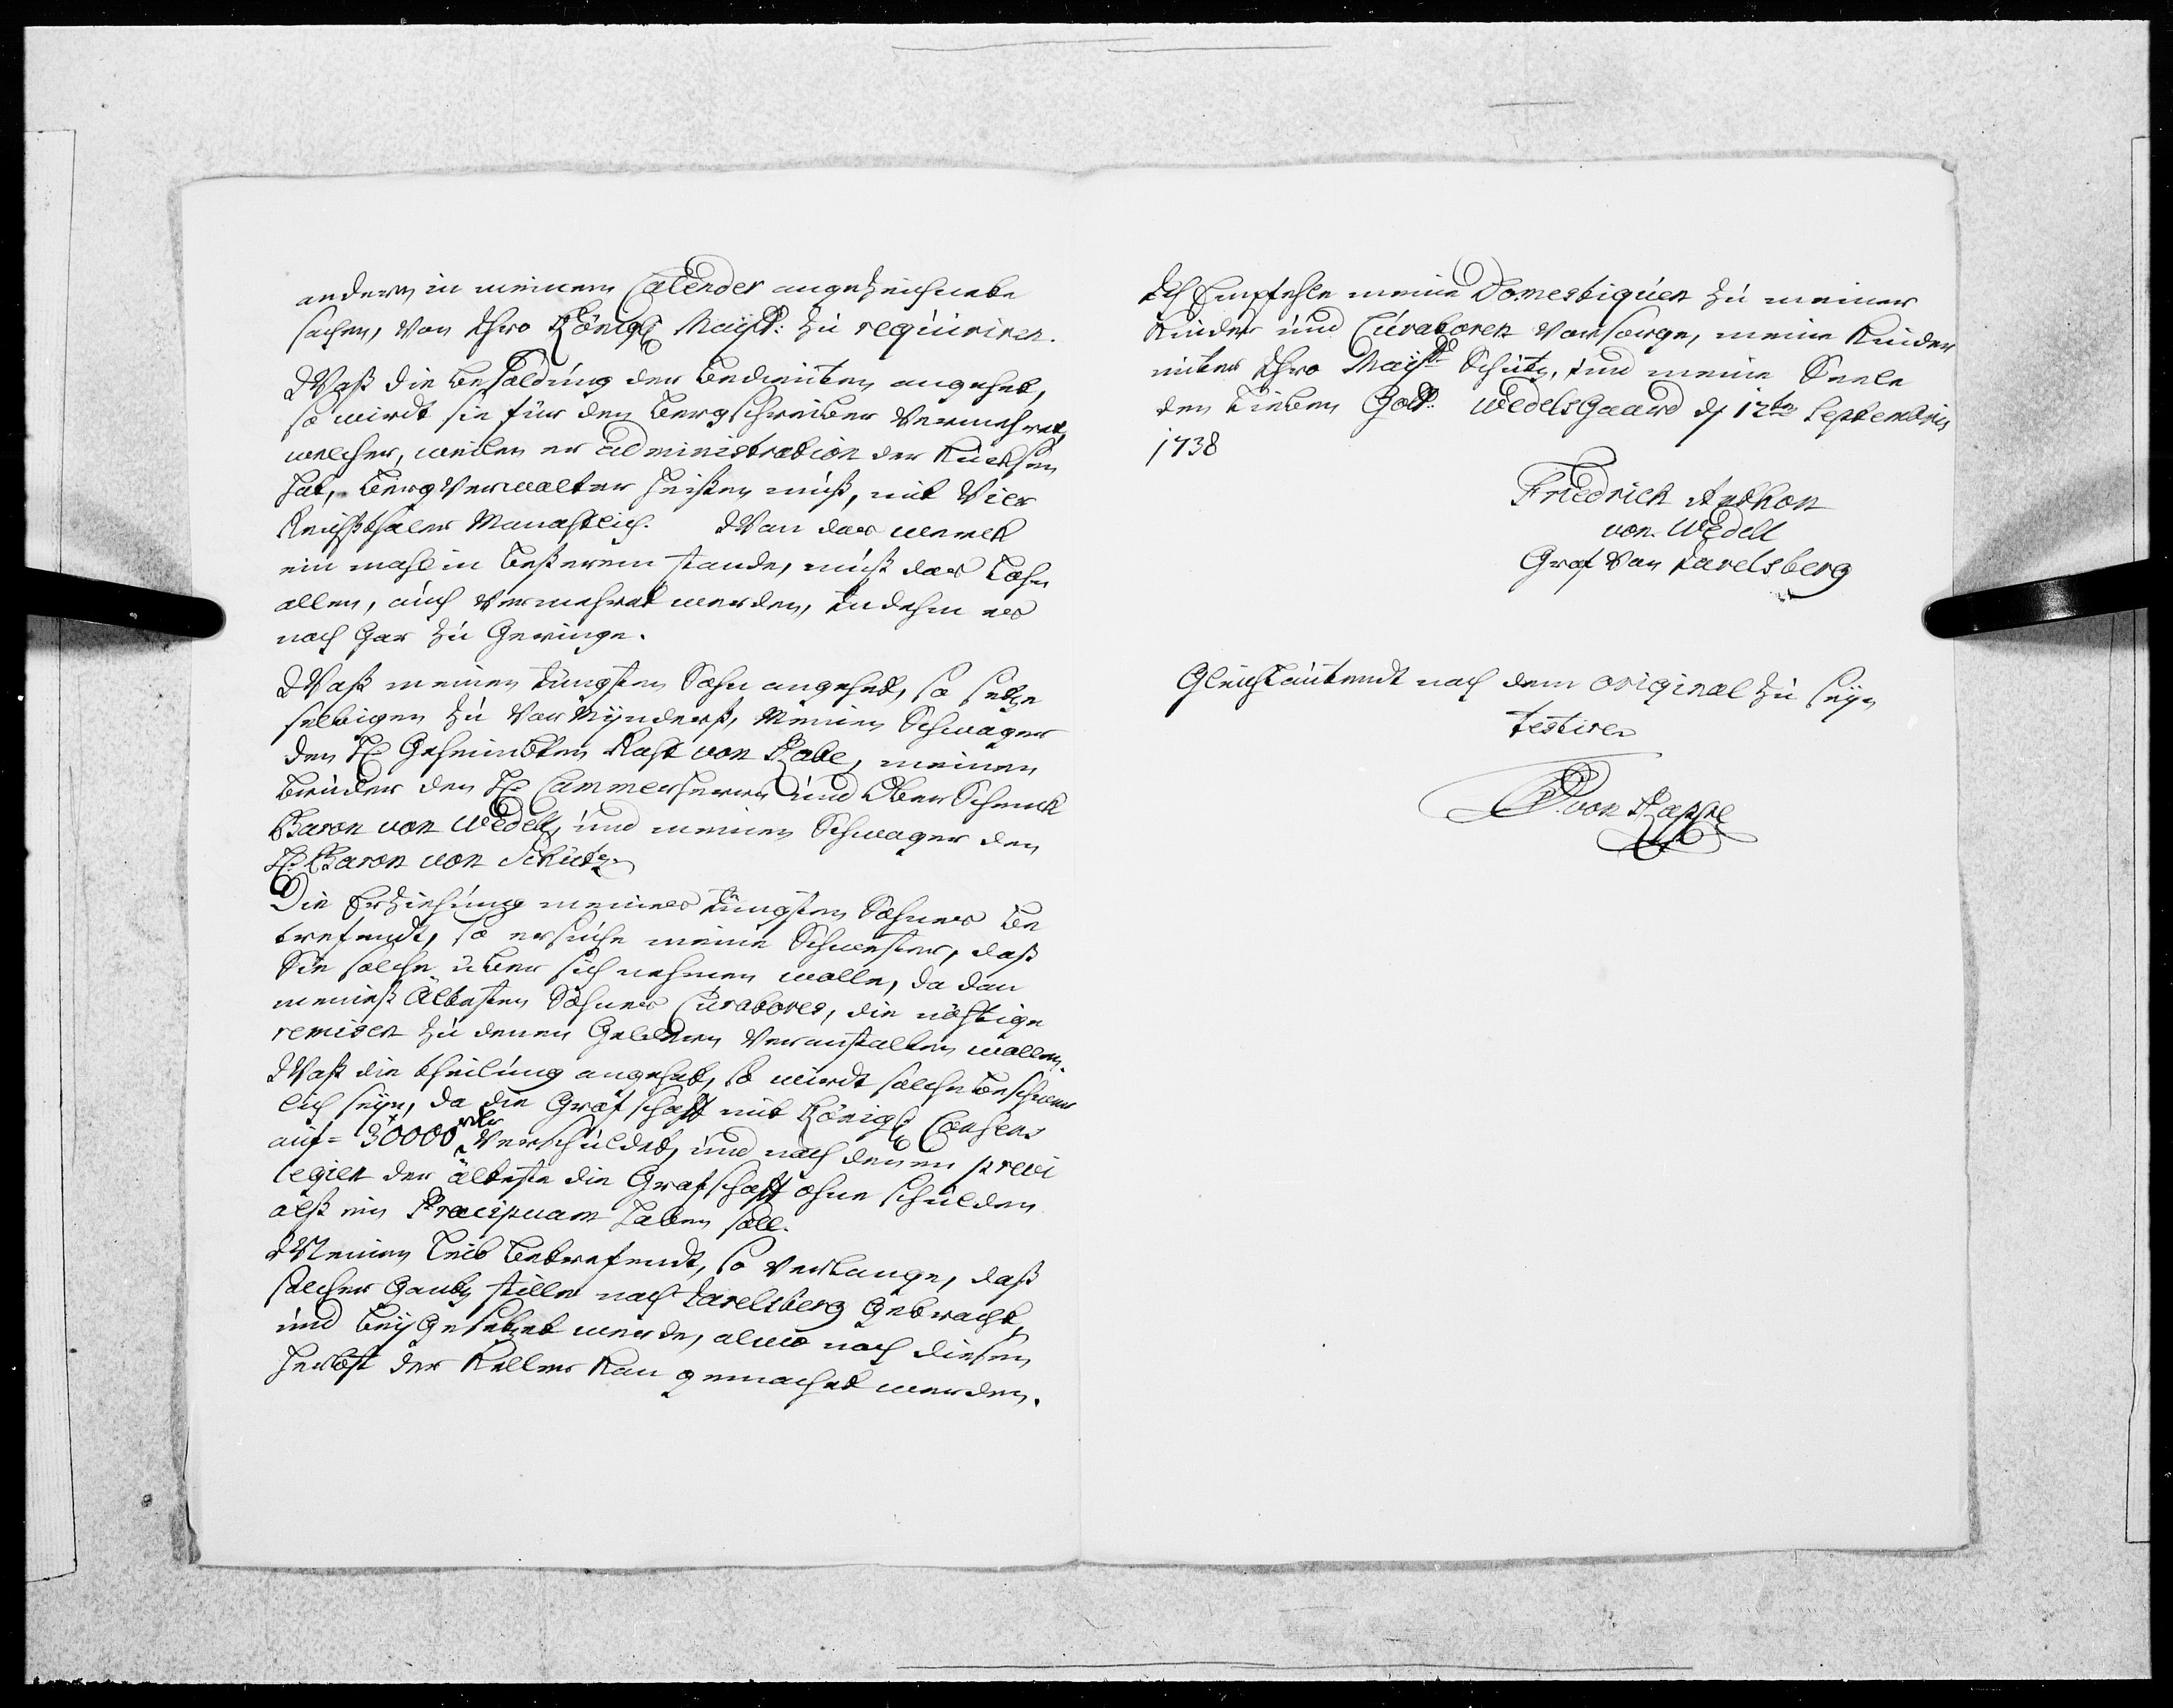 andern in meinem Calender angezeichnete
sachen, von Ihro Königl Mayst: zu requiriren.
Waß die besoldung der bedienten angehet,
so wirdt sie für den bergschreiber vermehret,
welcher, weilen er administration der
hat, bergverwalter heißen muß, mit Vier
Reichsthaler Monahtlich. Wan das werck
ein mahl in beßerem stande, muß das Lohn
allen, auch vermehret werden, indehm es
noch Gar zu Geringe.
Waß meinen Jüngsten Sohn angehet, so setze
selbigen zu Vormünders, Meinen Schwager
den H Geheimbten Raht von Rabe, meinen
bruder den H: Cammerherrn und Ober Schenck
Baron von Wedell, und meinen Schwager den
H: Baron von Schütz
Die Erziehung meines Jüngsten Sohnes be
trefendt, so ersuche meine Schwester, daß
Sie solche über sich nehmen wolle, da dan
meines Ältesten Sohnes Curatores, die nöhtige
remisen zu denen Geldern veranstalten wollen.
Waß die theilung angehet, so wirdt solche beschwer
lich seyn, da die Grafschafft mit Königl Consens
auf = 30000 rdlr verschuldet, und nach denen previ
legien der älteste die Grafschafft ohne schulden
alß ein Præcipuum haben soll.
Meinen Leib betrefendt, so verlange, daß
solcher Gantz stille nach Jarelsberg gebracht
und beygesetzet werde, alwo noch diesen
herbst der Keller kan gemachet werden.
Ich Empfehle meine Domestiquen zu meiner
Kinder und Curatoren vorsorge, meine Kinder
unter Ihro Mayst Schutz, und meine Seele
den Lieben Gott. WedelsGaard d 12ten Septembris
1738
Friedrich Anthon
von Wedell
Graf von Jarelsberg
Gleichlautendt nach dem original zu seyn
testire
P. von Kappel